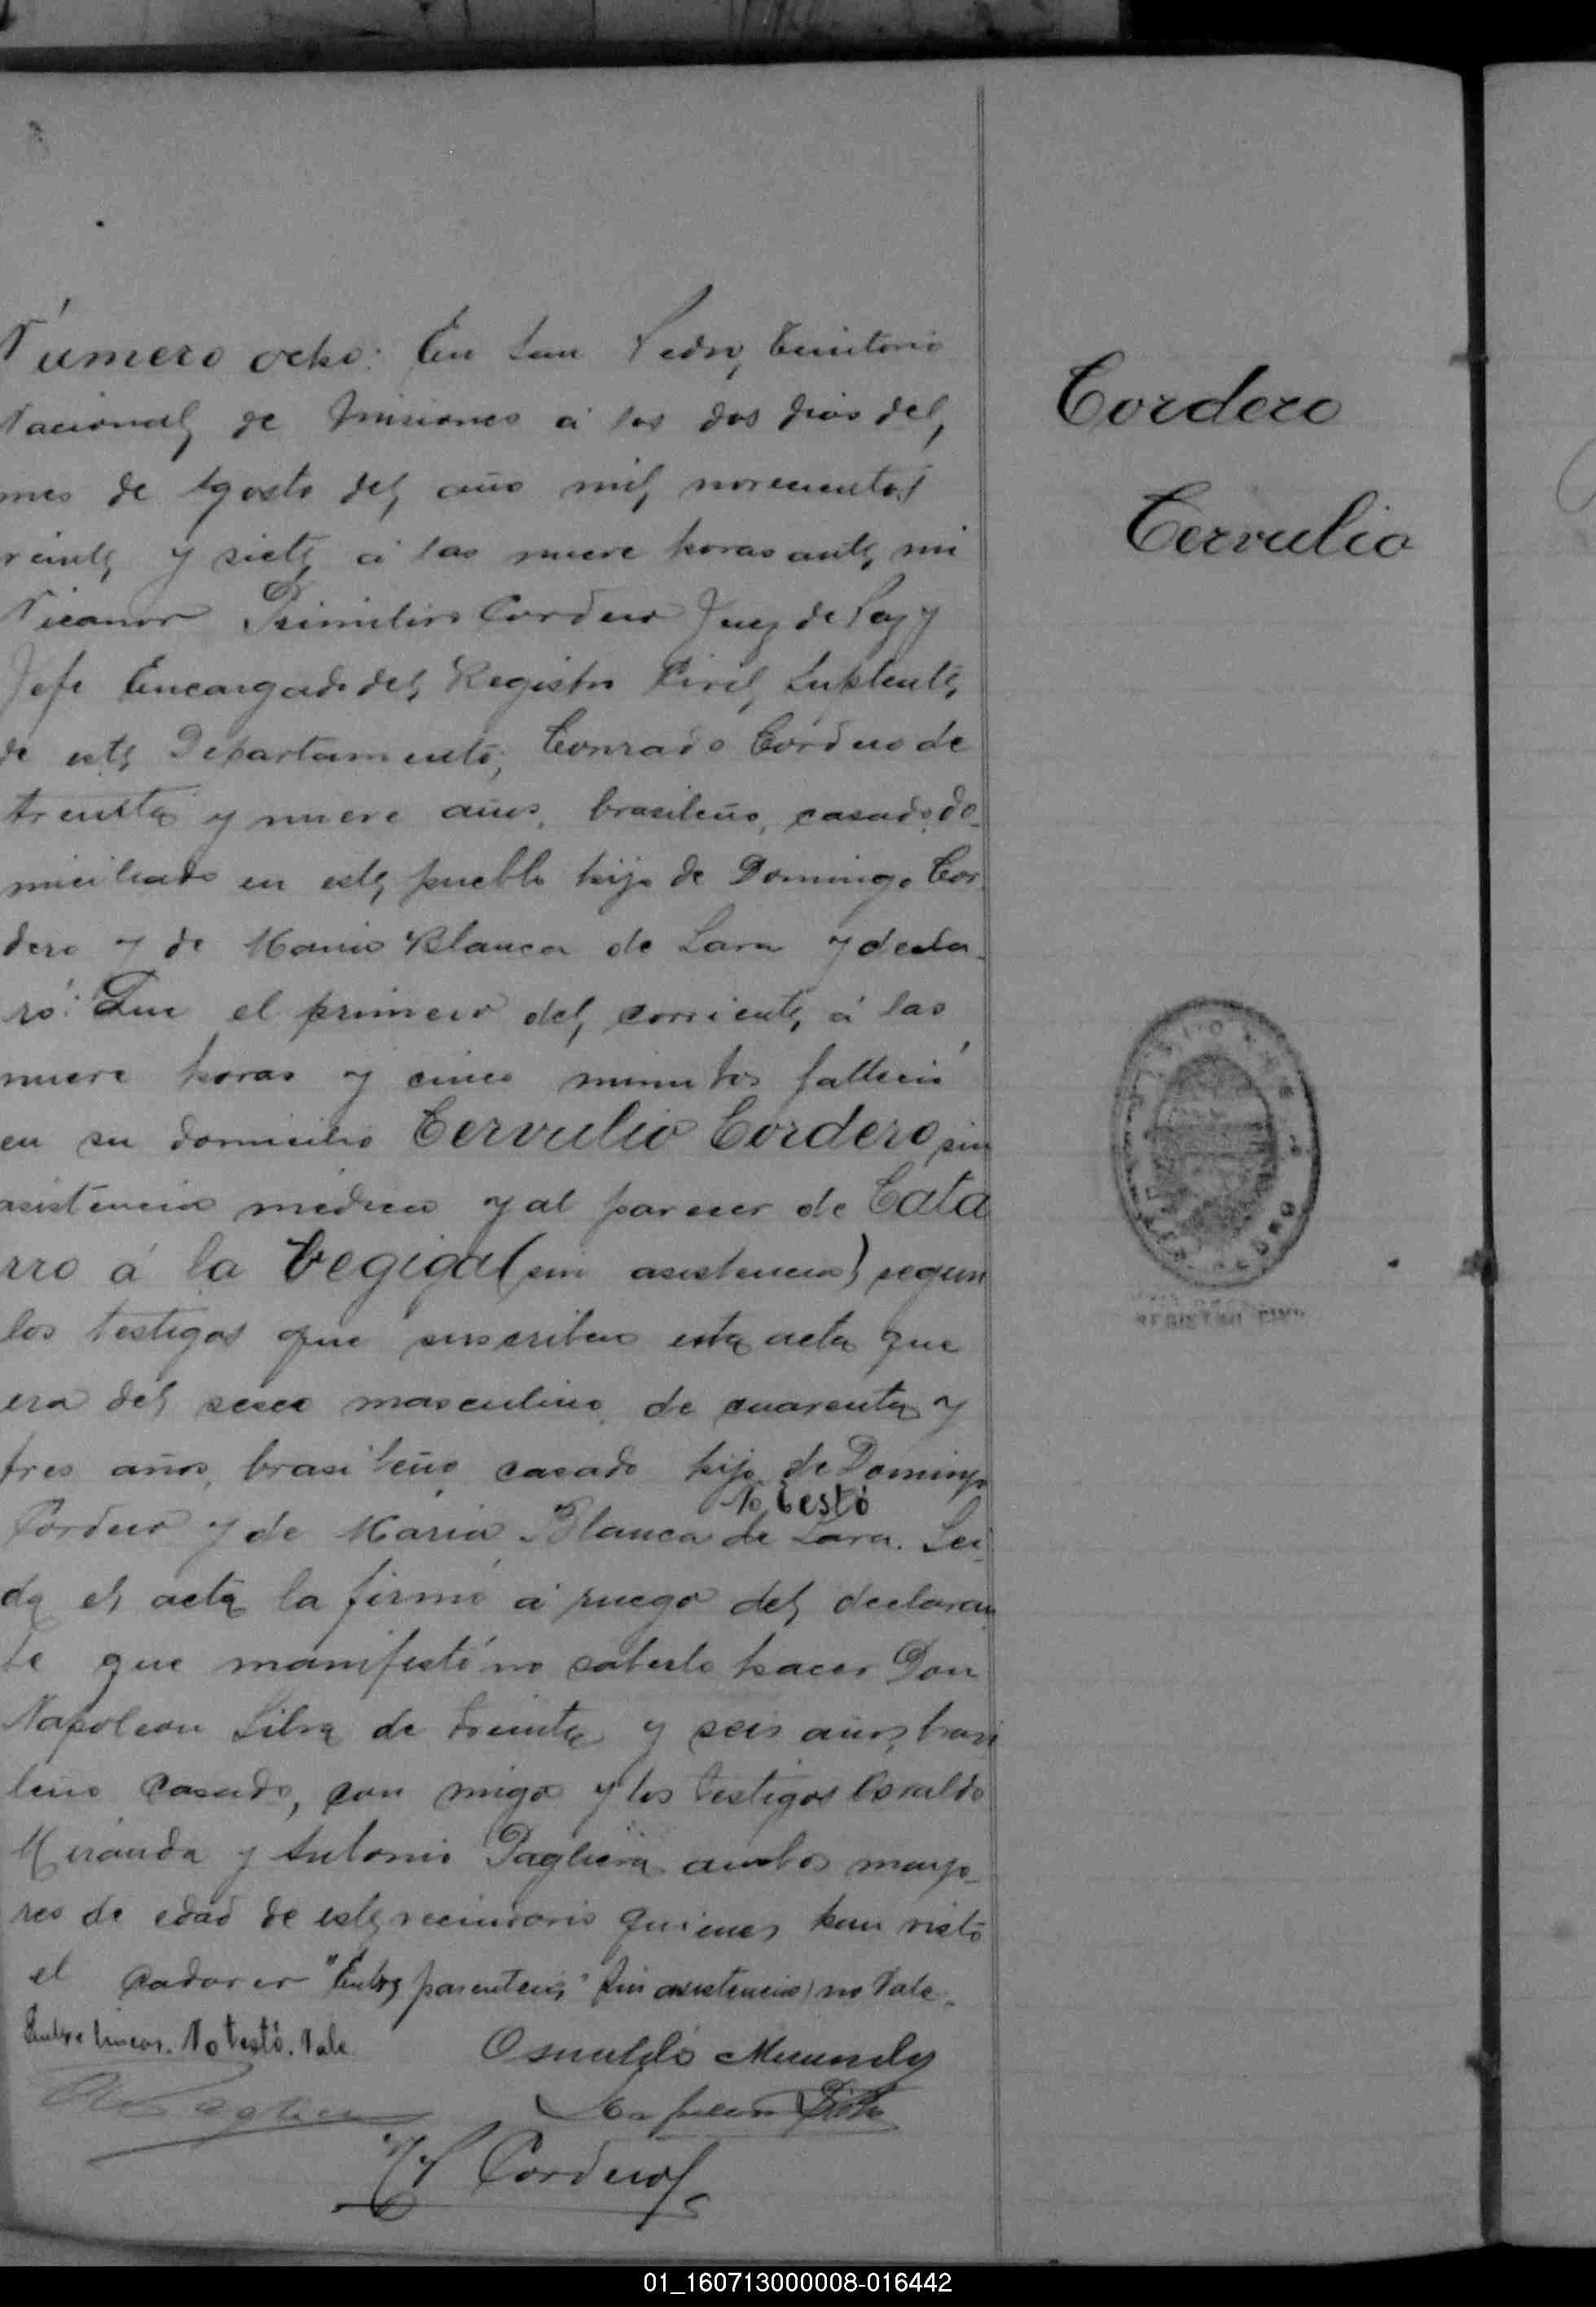 Número ocho: En San Pedro, Territorio
Nacional de Misiones á los dos dias del
mes de Agosto del año mil novecientos
veinte y siete á las nueve horas ante mi
Nicanor Primitivo Cordero Juez de Paz y
Jefe Encargado del Registro Civil Suplente
de este Departamento, Conrado Córdero de
treinta y nueve años, brasileño, casado, do-
miciliado en este pueblo hijo de Domingo Cor-
dero y de Maria Blanca de Lara y decla-
ró: Que el primero del corriente á las
nueve horas y cinco minutos falleció
en su domicilio Cervulio Cordero sin
asistencia médica y al parecer de Cata
rro á la Vegiga (sin asistencia) segun
los testigos que suscriben esta acta que
era del secso masculino, de cuarenta y
tres años, brasileño, casado hijo de Domingo
No Testó
Cordero y de Maria Blanca de Lara. Lei-
da el acta la firmó á ruego del declaran
te que manifestó no saberlo hacer Don
Napoleon Silva de treinta y seis años, brasi
leño casado, con migo y los testigos Osvaldo
Miranda y Antonio Pagliera ambos mayo-
res de edad de este vecindario quienes han visto
el cadaver "Entre parentesis" (sin asistencia) no Vale.
Entre lineas. No testó. Vale
Osvaldo Miranda
Napoleon Silva
N P Cordero
Cordero
Cervulio
MISIONES
REGISTRO CIVIL
01_160713000008-016442